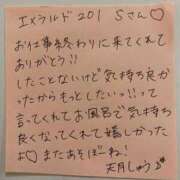 エメラルド201 Sさん♡
お仕事終わりに来てくれて
ありがとう!!
したことないけど気持ち良か
ったからもっとしたいっ!!って
言ってくれてお風呂で気持ち
良くなってくれて嬉しかった
よ♡またあそぼーね!
天月しゅう